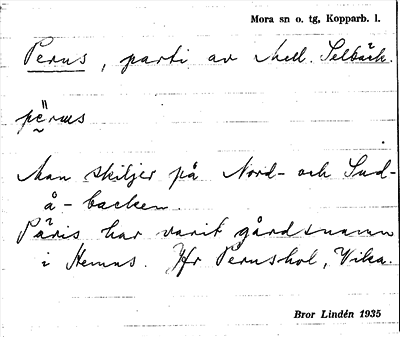 Mora sn o. tg, Kopparb. l.
Perus, parti av Mell. Selbäck.
Man skiljer på Nord- och Sud-
å-backen.
Påris har varit gårdsnamn
i Hemus. Jfr Pernshol, Vika.
Bror Lindén 1935